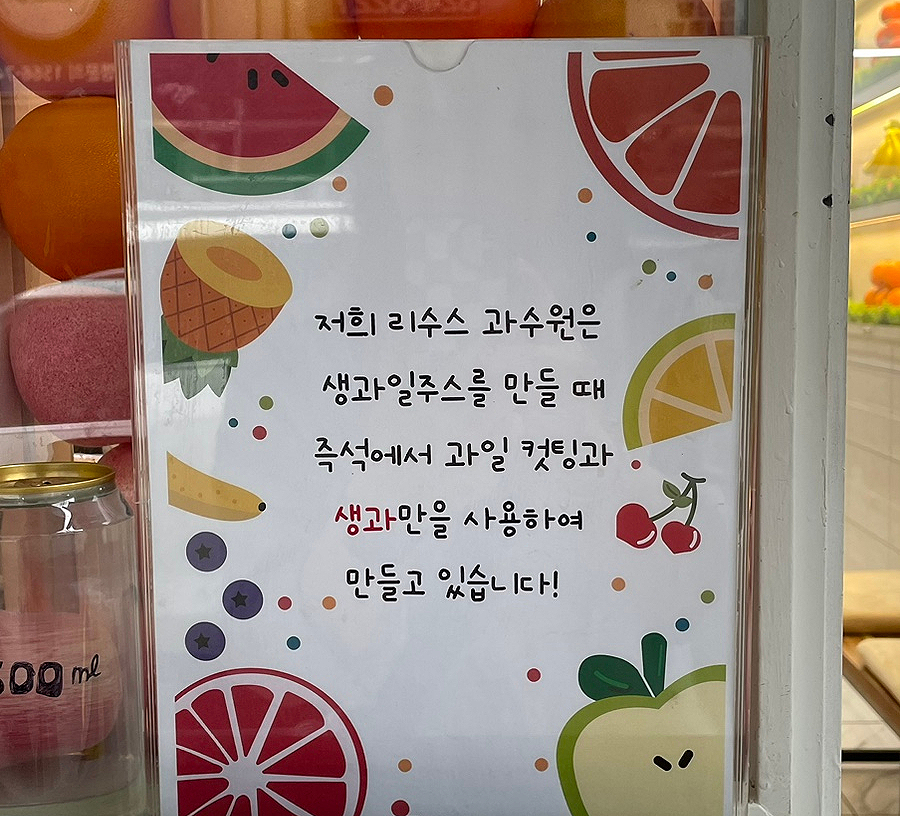 저희 리수스 과수원은
생과일주스를 만들 때
즉석에서 과일 컷팅과
생과만을 사용하여
만들고 있습니다!
500 ml